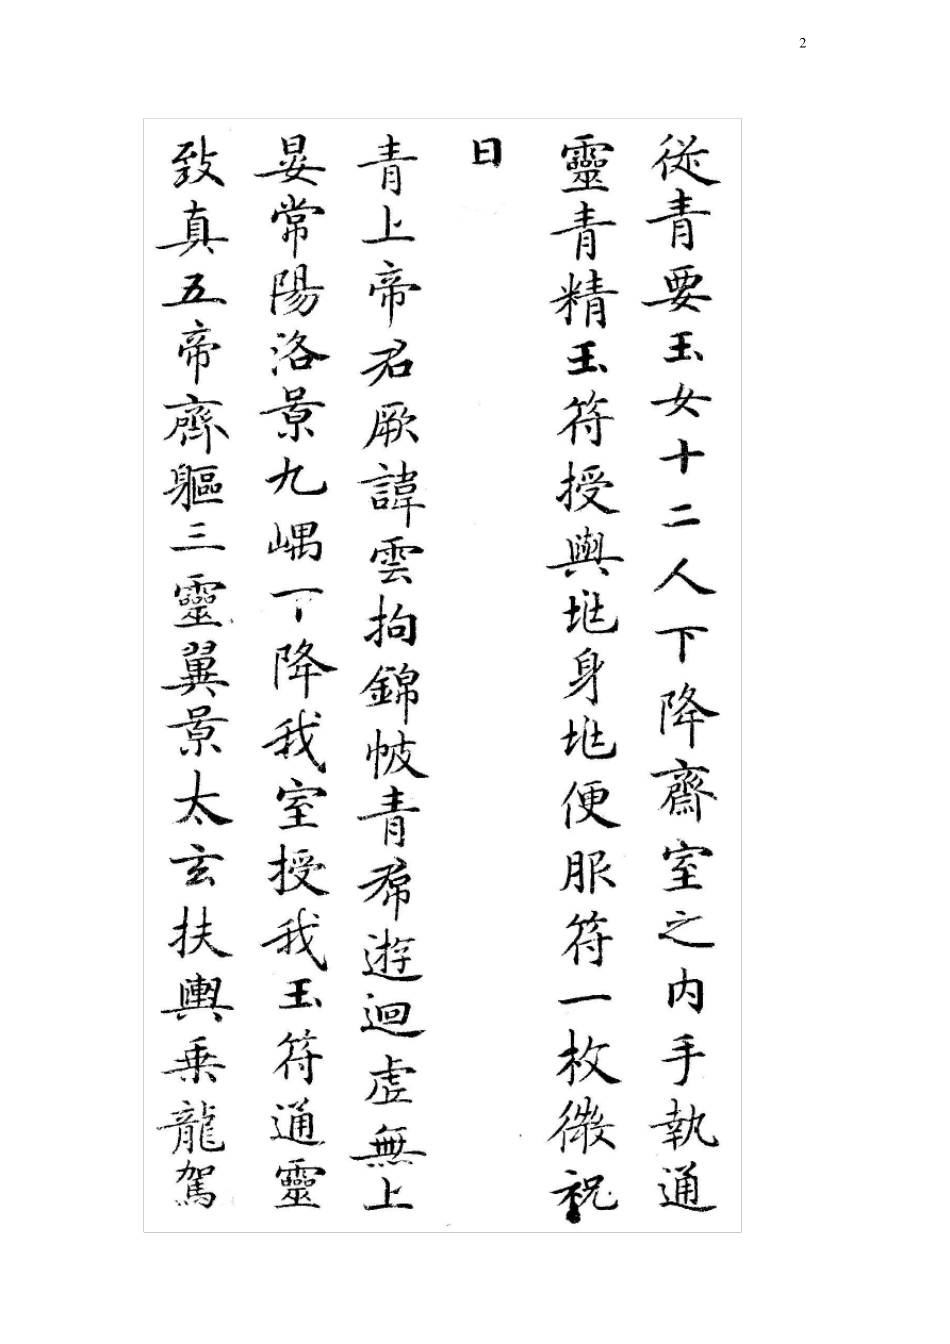 2
從青要玉女十二人下降齋室之內手執通
靈青精玉符授與垗身垗便服符一枚微祝
曰
青上帝君厥諱雲拘錦帔青帬遊迴虛無上
晏常陽洛景九嵎下降我室授我玉符通靈
致真五帝齊軀三靈翼景太玄扶輿乘龍駕